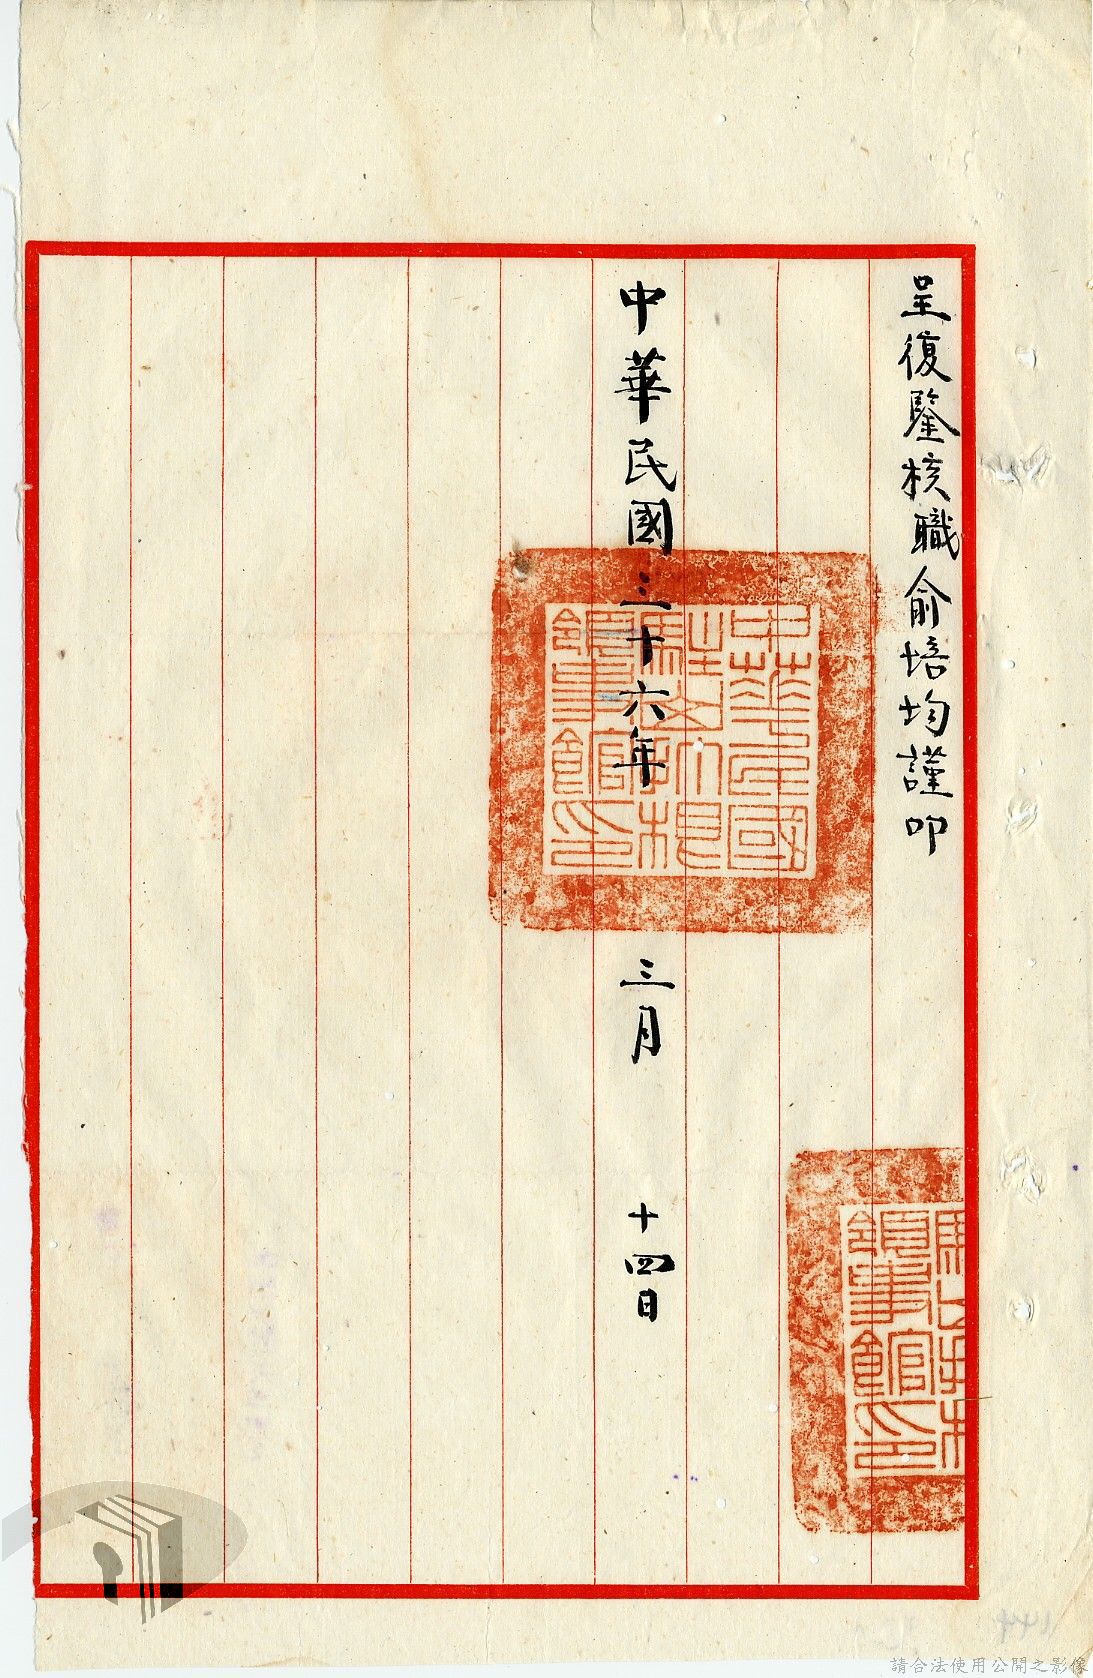 呈復鑒核職俞培均謹叩
中華民國三十六年三月十四日
中華民國
駐山打根
領事館印
領事館印
請合法使用公開之影像